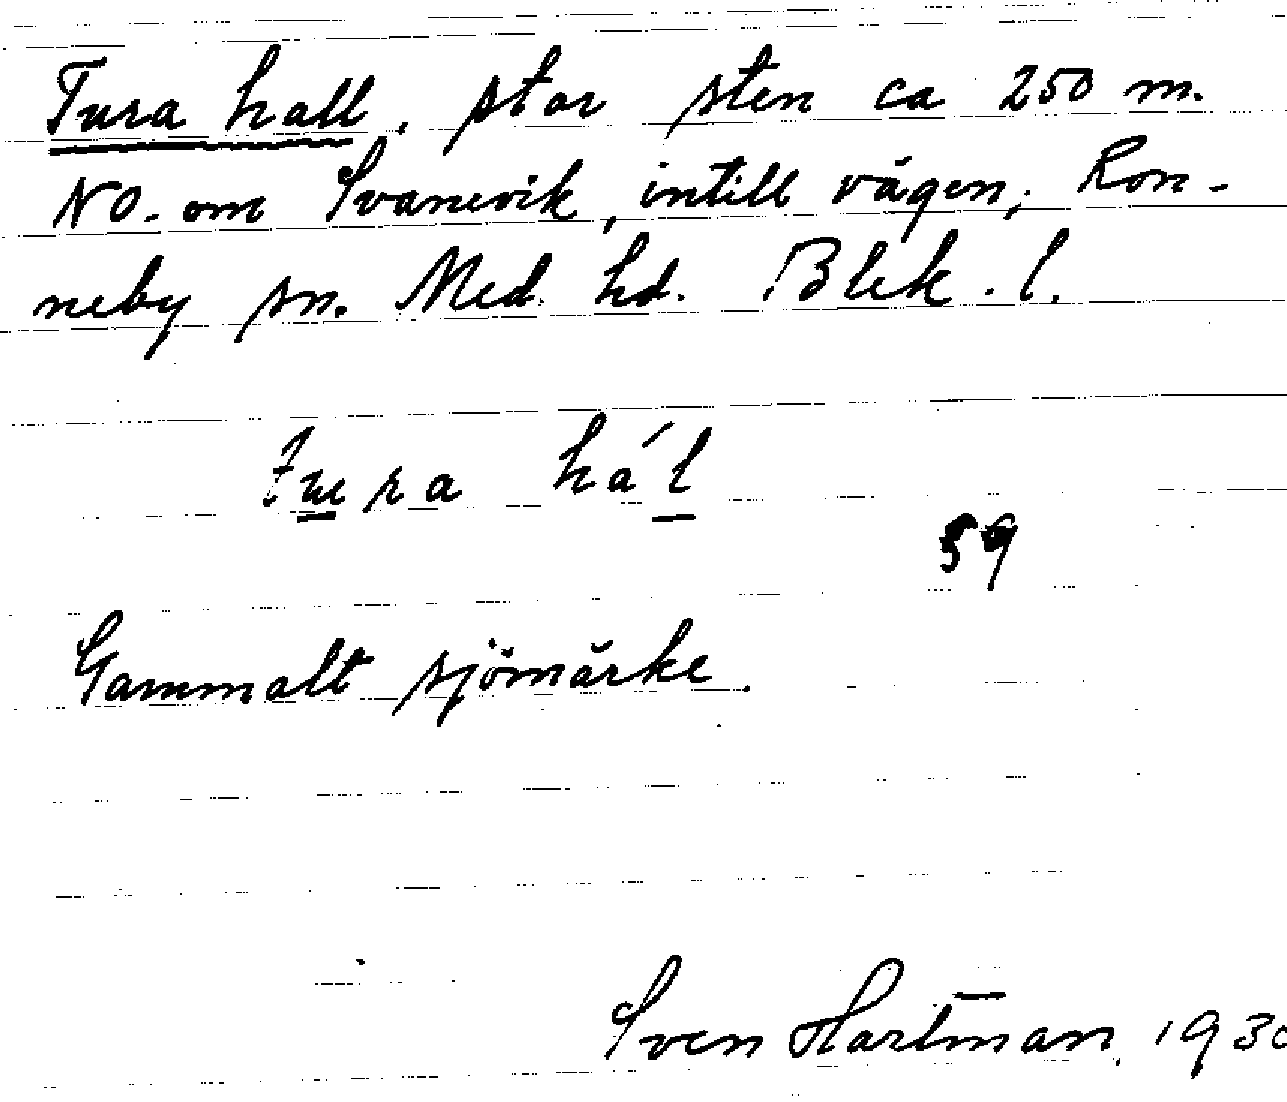 Tura hall, stor sten ca 250 m.
NO. om Svanevik, intill vägen, Ron-
neby sn. Med. hd. Blek. l.
tura hál
59
Gammalt sjömärke.
Sven Hartman, 1930